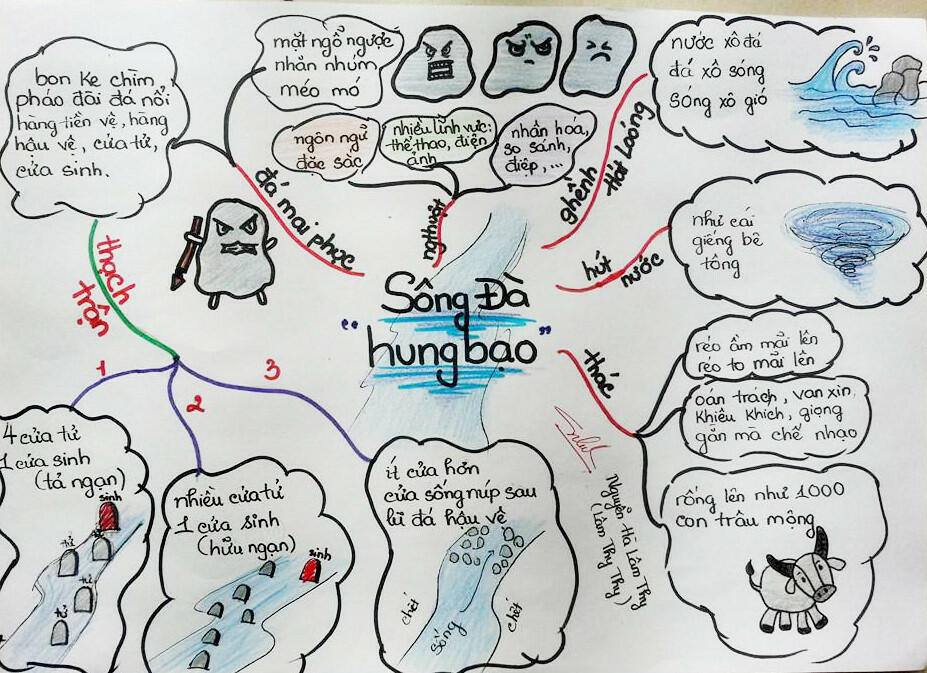 Sông Đà
"hung bạo"
đá mai phục
mặt ngổ ngược
nhăn nhúm
méo mó
bon ke chìm,
pháo đài đá nổi
hàng tiền vệ, hàng
hậu vệ, cửa tử,
cửa sinh.
ng thuật
ngôn ngữ
đặc sắc
nhiều lĩnh vực:
thể thao, điện
ảnh
nhân hóa,
so sánh,
điệp,...
ghềnh
Hát Loóng
nước xô đá
đá xô sóng
sóng xô gió
hút
nước
như cái
giếng bê
tông
thác
réo ầm mãi lên
réo to mãi lên
oán trách, van xin,
khiêu khích, giọng
gằn mà chế nhạo
rống lên như 1000
con trâu mộng
thạch
trận
1
4 cửa tử
1 cửa sinh
(tả ngạn)
sinh
tử
tử
tử
tử
2
nhiều cửa tử
1 cửa sinh
(hữu ngạn)
sinh
3
ít cửa hơn
cửa sống núp sau
lũ đá hậu vệ
chết
sống
chết
Nguyễn Hà Lâm Thy
(Lâm Thy Thy)